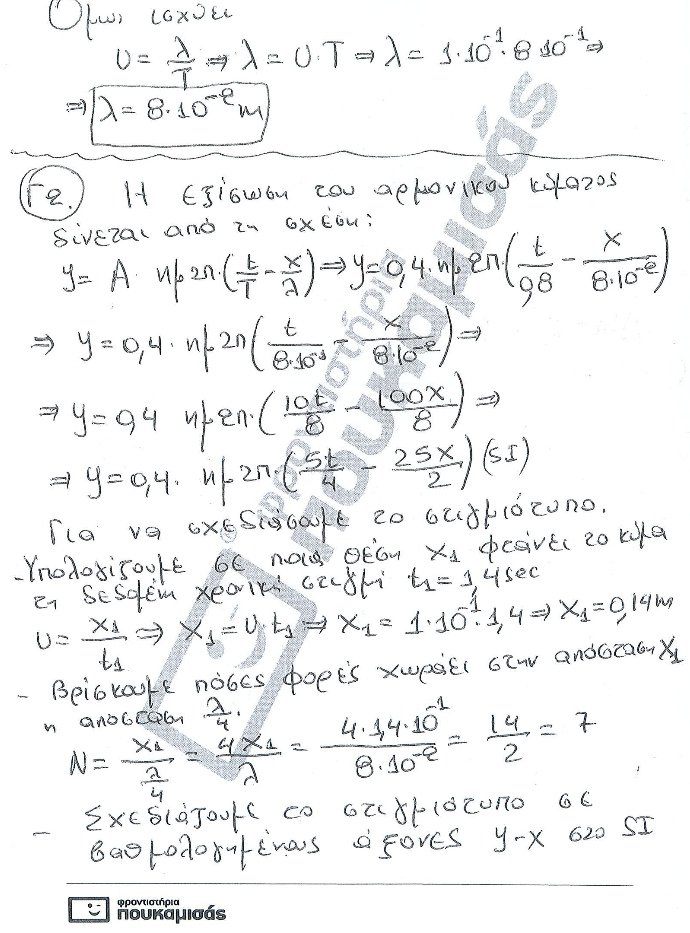 Όμως ισχύει
υ = λ/T ⇒ λ = υ·T ⇒ λ = 1·10⁻¹·8 10⁻¹ ⇒
⇒ λ = 8·10⁻² m
Γ2. Η εξίσωση του αρμονικού κύματος
δίνεται από τη σχέση:
y = A ημ2π·(t/T - x/λ) ⇒ y = 0,4·ημ2π·(t/0,8 - x/8·10⁻²)
⇒ y = 0,4· ημ2π(t/8·10⁻¹ - x/8·10⁻²) ⇒
⇒ y = 0,4 ημ2π·(10t/8 - 100x/8) ⇒
⇒ y = 0,4· ημ2π·(5t/4 - 25x/2) (SI)
Για να σχεδιάσουμε το στιγμιότυπο.
-Υπολογίζουμε σε ποια θέση x₁ φτάνει το κύμα
τη δεδομένη χρονική στιγμή t₁ = 1,4sec
υ = x₁/t₁ ⇒ x₁ = υ·t₁ ⇒ x₁ = 1·10⁻¹·1,4 ⇒ x₁ = 0,14m
- Βρίσκουμε πόσες φορές χωράει στην απόσταση x₁
η απόσταση λ/4.
N = x₁/(λ/4) = 4x₁/λ = 4·1,4·10⁻¹/8·10⁻² = 14/2 = 7
- Σχεδιάζουμε το στιγμιότυπο σε
βαθμολογημένους άξονες y-x στο SI
φροντιστήρια
πουκαμισάς
φροντιστήρια
πουκαμισάς